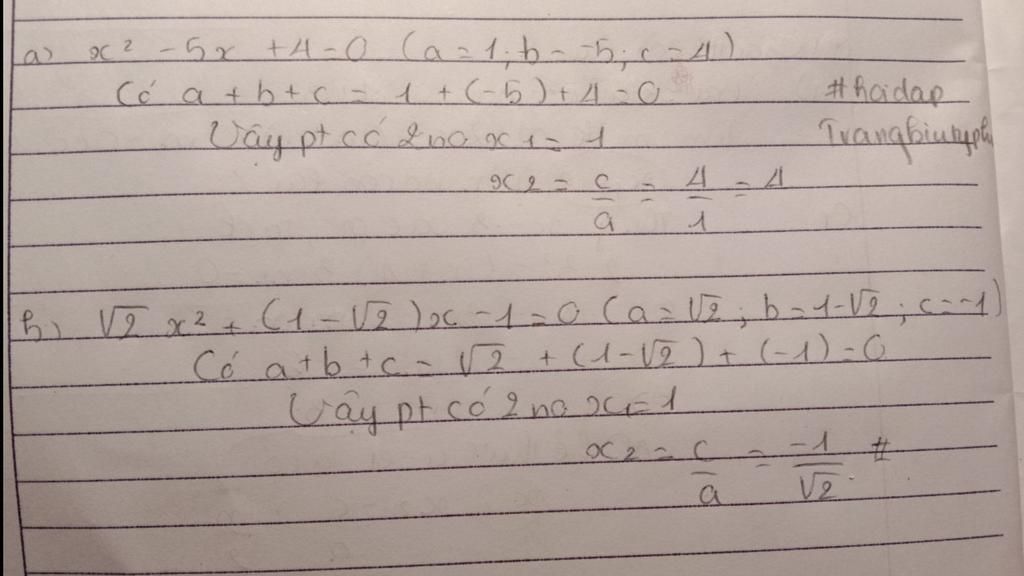 a) x² - 5x + 4 = 0 (a = 1; b = -5; c = 4)
Có a + b + c = 1 + (-5) + 4 = 0
#hoidap
Vậy pt có 2 no x1 = 1
x2 = c/a = 4/1 = 4
b) √2 x² + (1 - √2)x - 1 = 0 (a = √2; b = 1 - √2; c = -1)
Có a + b + c = √2 + (1 - √2) + (-1) = 0
Vậy pt có 2 no x1 = 1
x2 = c/a = -1/√2 #